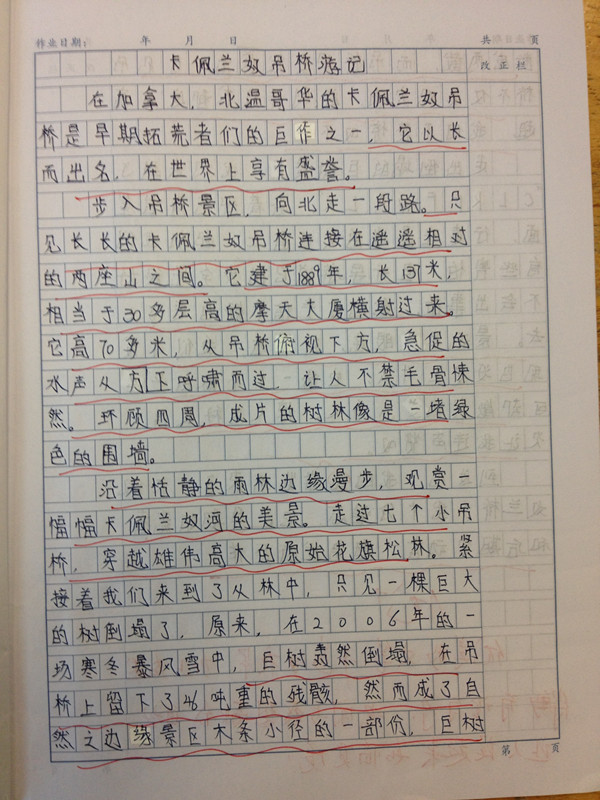 作业日期： 年 月 日 共 页
卡佩兰奴吊桥游记 改正栏
在加拿大，北温哥华的卡佩兰奴吊
桥是早期拓荒者们的巨作之一，它以长
而出名，在世界上享有盛誉。
步入吊桥景区，向北走一段路。只
见长长的卡佩兰奴吊桥连接在遥遥相对
的两座山之间。它建于1889年，长137米，
相当于30多层高的摩天大厦横射过来。
它高70多米，从吊桥俯视下方，急促的
水声从方下呼啸而过，让人不禁毛骨悚
然。环顾四周，成片的树林像是一堵绿
色的围墙。
沿着恬静的雨林边缘漫步，观赏一
幅幅卡佩兰奴河的美景。走过七个小吊
桥，穿越雄伟高大的原始花旗松林。紧
接着我们来到了从林中，只见一棵巨大
的树倒塌了，原来，在2006年的一
场寒冬暴风雪中，巨树轰然倒塌，在吊
桥上留下了46吨重的残骸，然而成了自
然之边缘景区木条小径的一部份，巨树
第 页